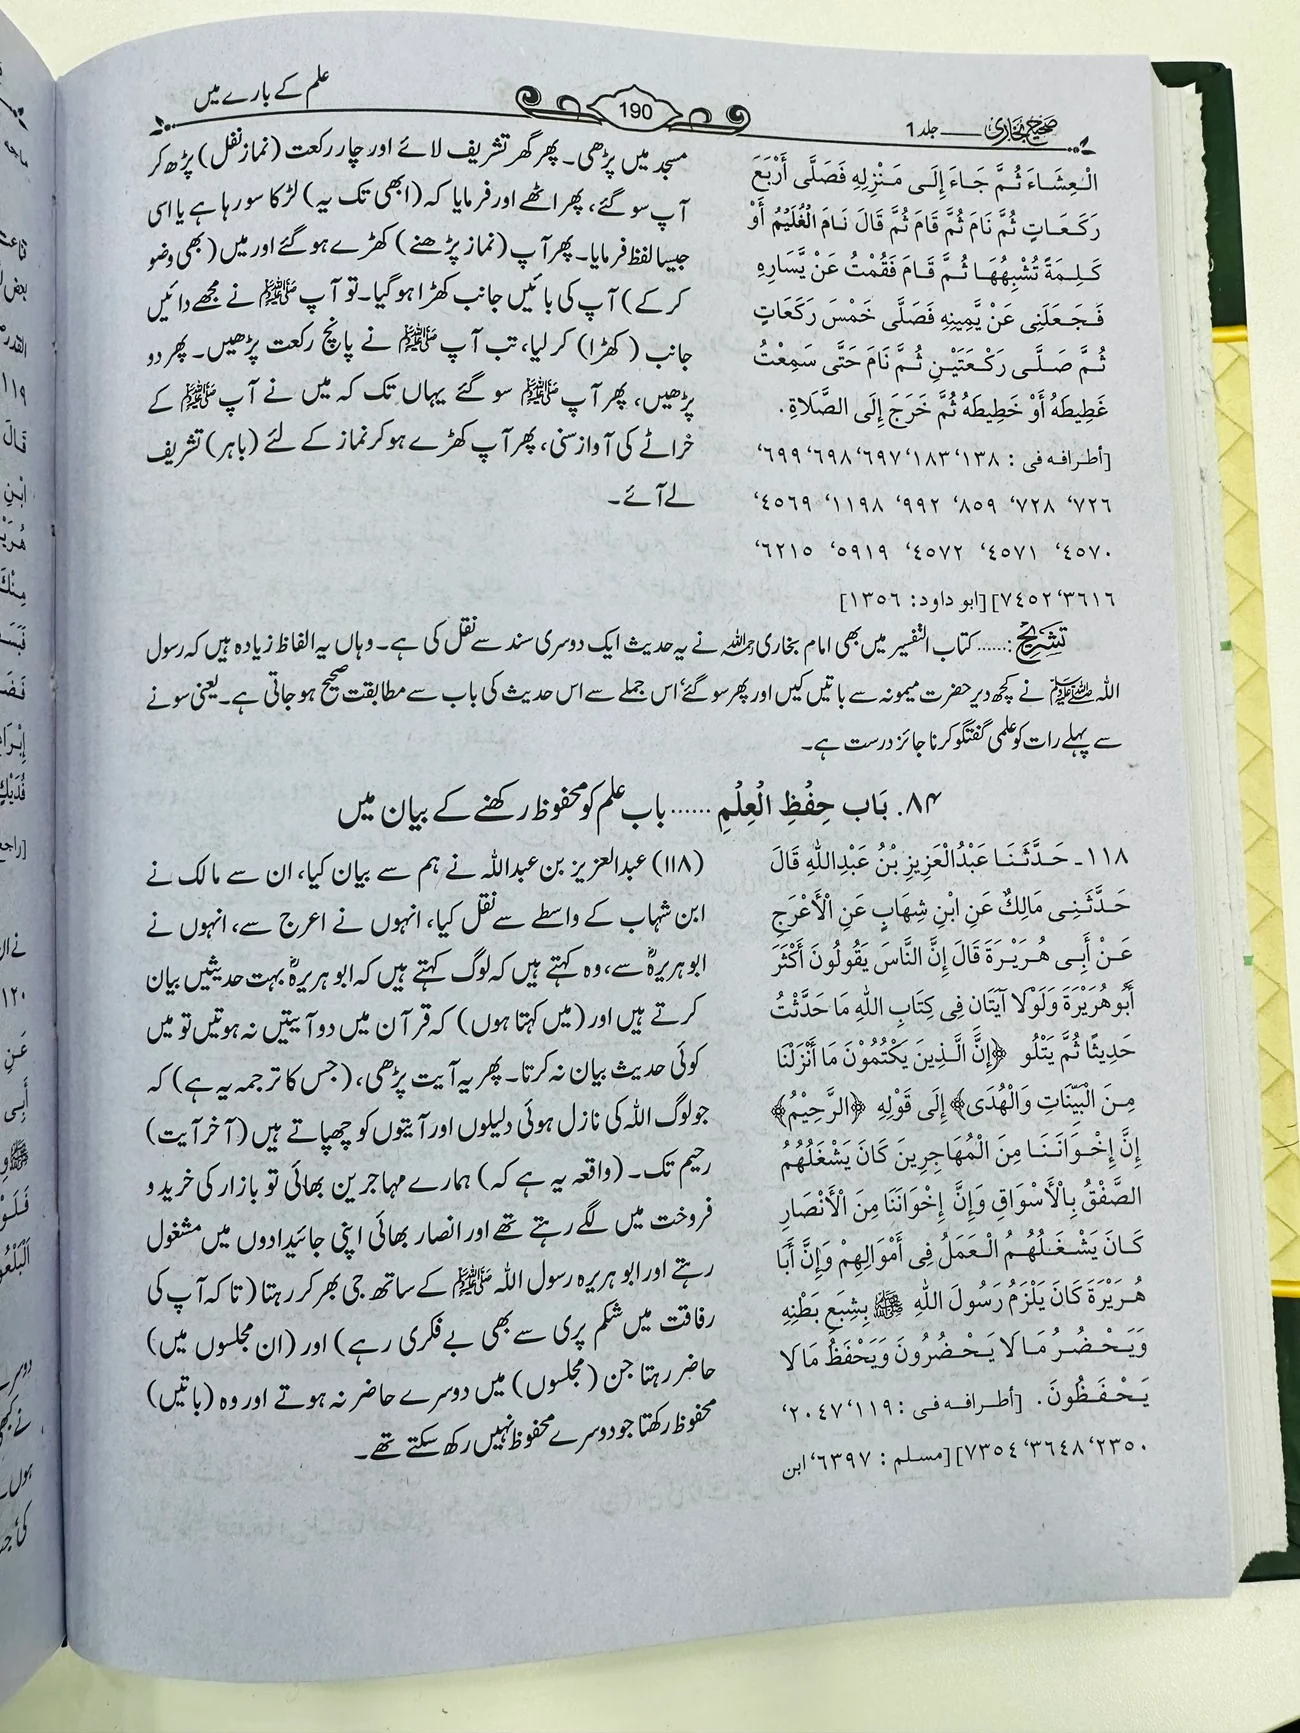 صحیح بخاری — جلد 1
190
علم کے بارے میں
الْعِشَاءَ ثُمَّ جَاءَ إِلَى مَنْزِلِهِ فَصَلَّى أَرْبَعَ
رَكَعَاتٍ ثُمَّ نَامَ ثُمَّ قَامَ ثُمَّ قَالَ نَامَ الْغُلَيِّمُ أَوْ
كَلِمَةً تُشْبِهُهَا ثُمَّ قَامَ فَقُمْتُ عَنْ يَّسَارِهِ
فَجَعَلَنِي عَنْ يَّمِينِهِ فَصَلَّى خَمْسَ رَكَعَاتٍ
ثُمَّ صَلَّى رَكْعَتَيْنِ ثُمَّ نَامَ حَتَّى سَمِعْتُ
غَطِيطَهُ أَوْ خَطِيطَهُ ثُمَّ خَرَجَ إِلَى الصَّلَاةِ.
[أطرافه في : ١٣٨، ١٨٣، ٦٩٧، ٦٩٨، ٦٩٩،
٧٢٦، ٧٢٨، ٨٥٩، ٩٩٢، ١١٩٨، ٤٥٦٩،
٤٥٧٠، ٤٥٧١، ٤٥٧٢، ٥٩١٩، ٦٢١٥،
٣٦١٦، ٧٤٥٢] [ابو داود: ١٣٥٦]
مسجد میں پڑھی۔ پھر گھر تشریف لائے اور چار رکعت (نماز نفل) پڑھ کر
آپ سو گئے، پھر اٹھے اور فرمایا کہ (ابھی تک یہ) لڑکا سو رہا ہے یا اسی
جیسا لفظ فرمایا۔ پھر آپ (نماز پڑھنے) کھڑے ہو گئے اور میں (بھی وضو
کر کے) آپ کی بائیں جانب کھڑا ہو گیا۔ تو آپ ﷺ نے مجھے دائیں
جانب (کھڑا) کر لیا، تب آپ ﷺ نے پانچ رکعت پڑھیں۔ پھر دو
پڑھیں، پھر آپ ﷺ سو گئے یہاں تک کہ میں نے آپ ﷺ کے
خراٹے کی آواز سنی، پھر آپ کھڑے ہو کر نماز کے لئے (باہر) تشریف
لے آئے۔
تشریح:...... کتاب التفسیر میں بھی امام بخاری رحمہ اللہ نے یہ حدیث ایک دوسری سند سے نقل کی ہے۔ وہاں یہ الفاظ زیادہ ہیں کہ رسول
اللہ ﷺ نے کچھ دیر حضرت میمونہ سے باتیں کیں اور پھر سو گئے، اس جملے سے اس حدیث کی باب سے مطابقت صحیح ہو جاتی ہے۔ یعنی سونے
سے پہلے رات کو علمی گفتگو کرنا جائز درست ہے۔
۸۴. بَاب حِفْظِ الْعِلْمِ ...... باب علم کو محفوظ رکھنے کے بیان میں
١١٨۔ حَدَّثَنَا عَبْدُالْعَزِيزِ بْنُ عَبْدِاللهِ قَالَ
حَدَّثَنِي مَالِكٌ عَنِ ابْنِ شِهَابٍ عَنِ الْأَعْرَجِ
عَنْ أَبِي هُرَيْرَةَ قَالَ إِنَّ النَّاسَ يَقُولُونَ أَكْثَرَ
أَبُو هُرَيْرَةَ وَلَوْلَا آيَتَانِ فِي كِتَابِ اللهِ مَا حَدَّثْتُ
حَدِيثًا ثُمَّ يَتْلُو ﴿إِنَّ الَّذِينَ يَكْتُمُوْنَ مَا أَنْزَلْنَا
مِنَ الْبَيِّنَاتِ وَالْهُدَى﴾ إِلَى قَوْلِهِ ﴿الرَّحِيْمُ﴾
إِنَّ إِخْوَانَنَا مِنَ الْمُهَاجِرِينَ كَانَ يَشْغَلُهُمُ
الصَّفْقُ بِالْأَسْوَاقِ وَإِنَّ إِخْوَانَنَا مِنَ الْأَنْصَارِ
كَانَ يَشْغَلُهُمُ الْعَمَلُ فِي أَمْوَالِهِمْ وَإِنَّ أَبَا
هُرَيْرَةَ كَانَ يَلْزَمُ رَسُولَ اللهِ ﷺ بِشِبَعِ بَطْنِهِ
وَيَحْضُرُ مَا لَا يَحْضُرُونَ وَيَحْفَظُ مَا لَا
يَحْفَظُونَ. [أطرافه في : ١١٩، ٢٠٤٧،
٢٣٥٠، ٣٦٤٨، ٧٣٥٤] [مسلم : ٦٣٩٧، ابن
(۱۱۸) عبدالعزیز بن عبداللہ نے ہم سے بیان کیا، ان سے مالک نے
ابن شہاب کے واسطے سے نقل کیا، انہوں نے اعرج سے، انہوں نے
ابو ہریرہؓ سے، وہ کہتے ہیں کہ لوگ کہتے ہیں کہ ابو ہریرہؓ بہت حدیثیں بیان
کرتے ہیں اور (میں کہتا ہوں) کہ قرآن میں دو آیتیں نہ ہوتیں تو میں
کوئی حدیث بیان نہ کرتا۔ پھر یہ آیت پڑھی، (جس کا ترجمہ یہ ہے) کہ
جو لوگ اللہ کی نازل ہوئی دلیلوں اور آیتوں کو چھپاتے ہیں (آخر آیت)
رحیم تک۔ (واقعہ یہ ہے کہ) ہمارے مہاجرین بھائی تو بازار کی خرید و
فروخت میں لگے رہتے تھے اور انصار بھائی اپنی جائیدادوں میں مشغول
رہتے اور ابو ہریرہ رسول اللہ ﷺ کے ساتھ جی بھر کر رہتا (تا کہ آپ کی
رفاقت میں شکم پری سے بھی بے فکری رہے) اور (ان مجلسوں میں)
حاضر رہتا جن (مجلسوں) میں دوسرے حاضر نہ ہوتے اور وہ (باتیں)
محفوظ رکھتا جو دوسرے محفوظ نہیں رکھ سکتے تھے۔